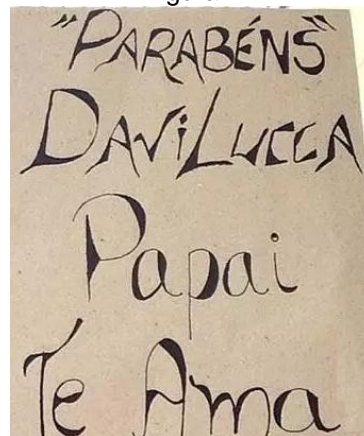 "PARABÉNS"
DAVi LUCCA
Papai
Te Ama